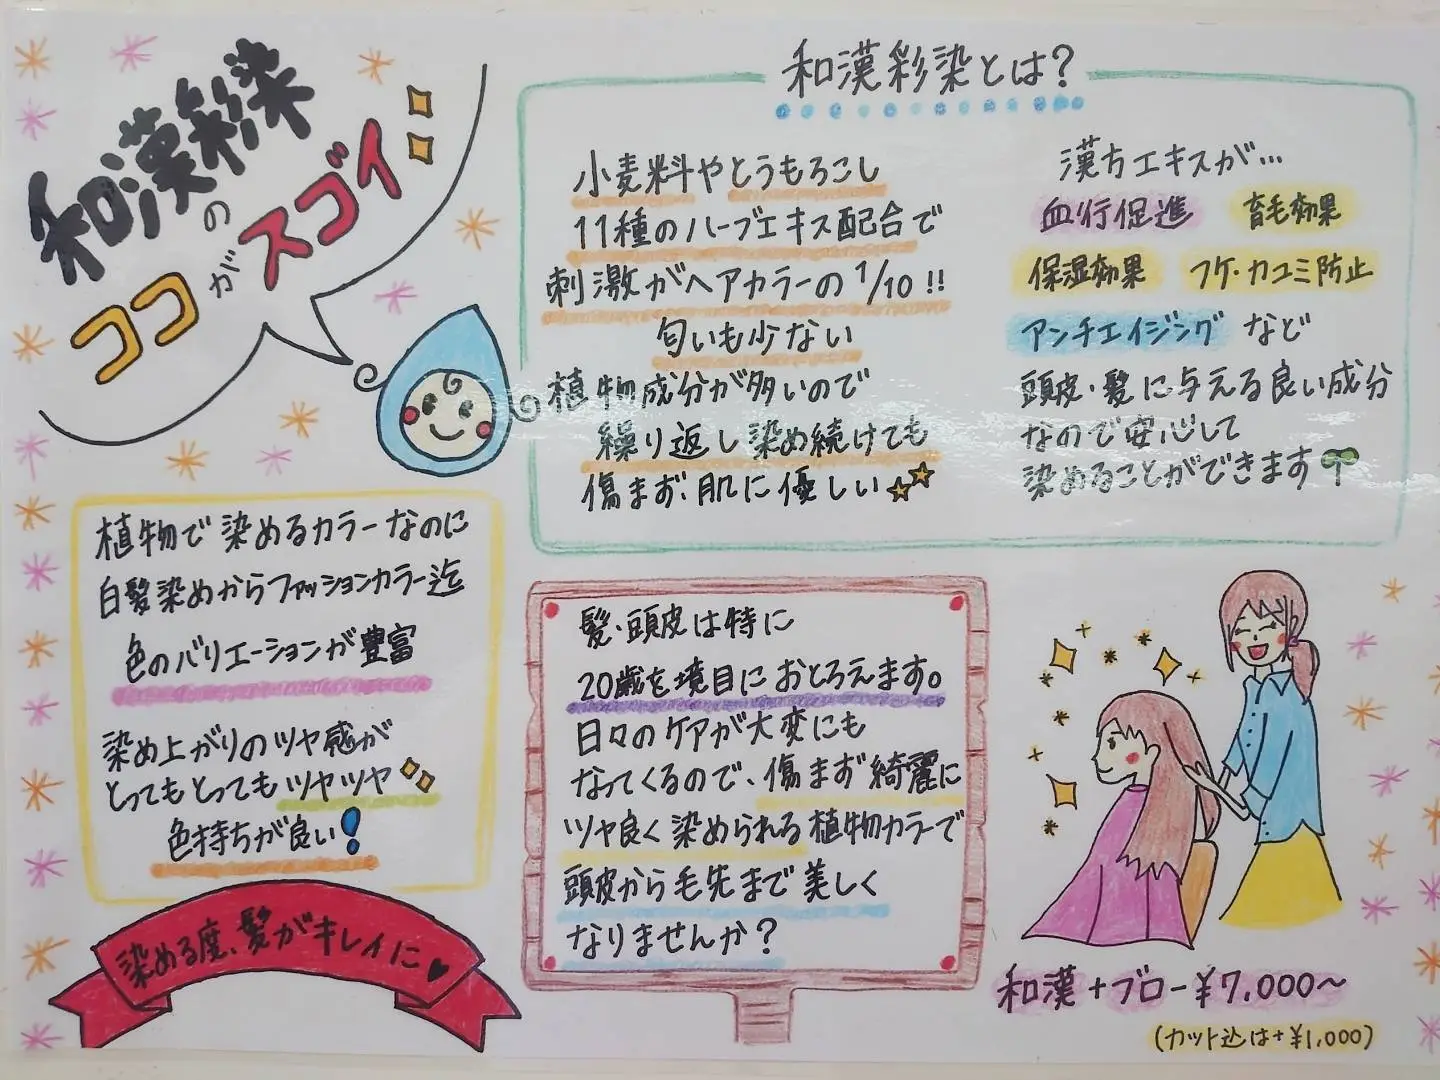 和漢彩染の
ココがスゴイ
和漢彩染とは?
小麦料やとうもろこし
11種のハーブエキス配合で
刺激がヘアカラーの1/10!!
匂いも少ない
植物成分が多いので
繰り返し染め続けても
傷まず、肌に優しい
漢方エキスが…
血行促進 育毛効果
保湿効果 フケ・カユミ防止
アンチエイジング など
頭皮・髪に与える良い成分
なので安心して
染めることができます
植物で染めるカラーなのに
白髪染めからファッションカラー迄
色のバリエーションが豊富
染め上がりのツヤ感が
とってもとってもツヤツヤ
色持ちが良い!
染める度、髪がキレイに♥
髪・頭皮は特に
20歳を境目におとろえます。
日々のケアが大変にも
なってくるので、傷まず綺麗に
ツヤ良く染められる植物カラーで
頭皮から毛先まで美しく
なりませんか?
和漢+ブロー¥7,000~
(カット込は+¥1,000)